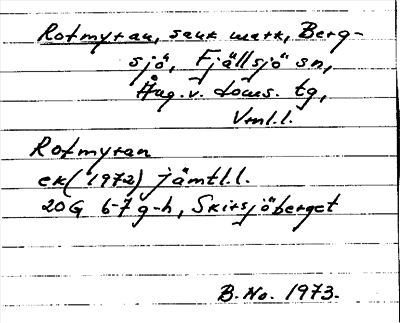 Rotmyran, sank mark, Berg-
sjö, Fjällsjö sn,
Ång.v. doms. tg,
Vnl.l.
Rotmyran
ek (1972) Jämtl.l.
20G 6-7 g-h, Skirsjöberget
B.No. 1973.